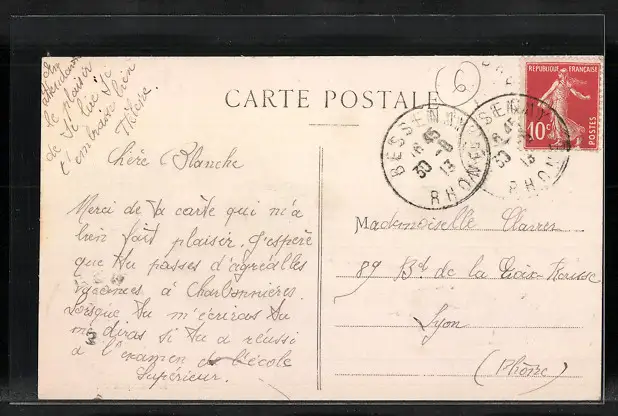 En
attendant
le plaisir
de te lire je
t'embrasse bien
Thérèse.
CARTE POSTALE
6
REPUBLIQUE FRANÇAISE
10c
POSTES
BESSENAY
16 45
30 -8
13
RHONE
Chère Blanche
Merci de ta carte qui m'a
bien fait plaisir. J'espère
que tu passes d'agréables
vacances à Charbonnières.
Lorsque tu m'écriras tu
me diras si tu a réussi
à l'examen de l'école
Supérieur.
Mademoiselle
89 Bd de la Croix-Rousse
Lyon
(Rhône)